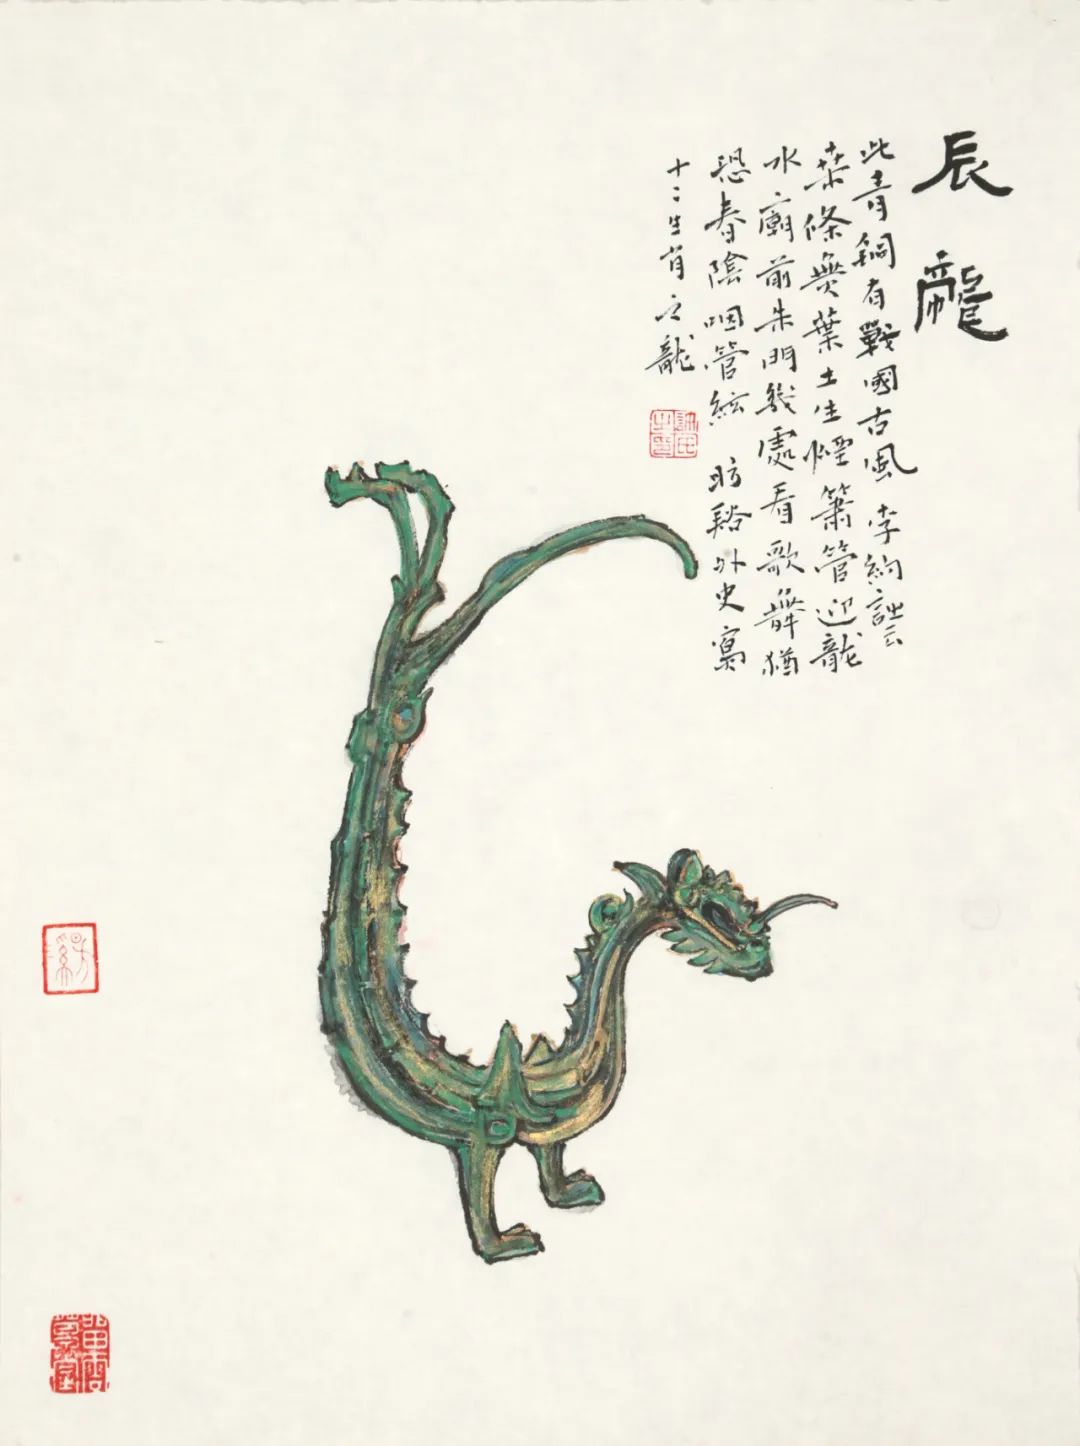 辰龍
此青銅有戰國古風 李約詩云
桒條無葉土生煙簫管迎龍
水廟前朱門幾處看歌舞猶
恐春陰咽管絃 昉谿外史寫
十二生肖之龍